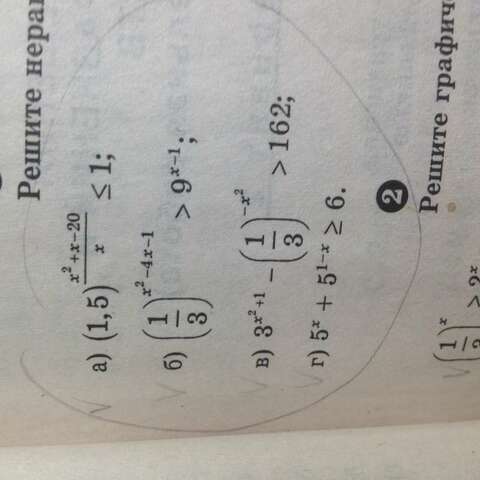 Решите нерав
а) (1,5)^{\frac{x^2+x-20}{x}} ≤ 1;
б) (\frac{1}{3})^{x^2-4x-1} > 9^{x-1};
в) 3^{x^2+1} - (\frac{1}{3})^{-x^2} > 162;
г) 5^x + 5^{1-x} ≥ 6.
2
Решите графиче